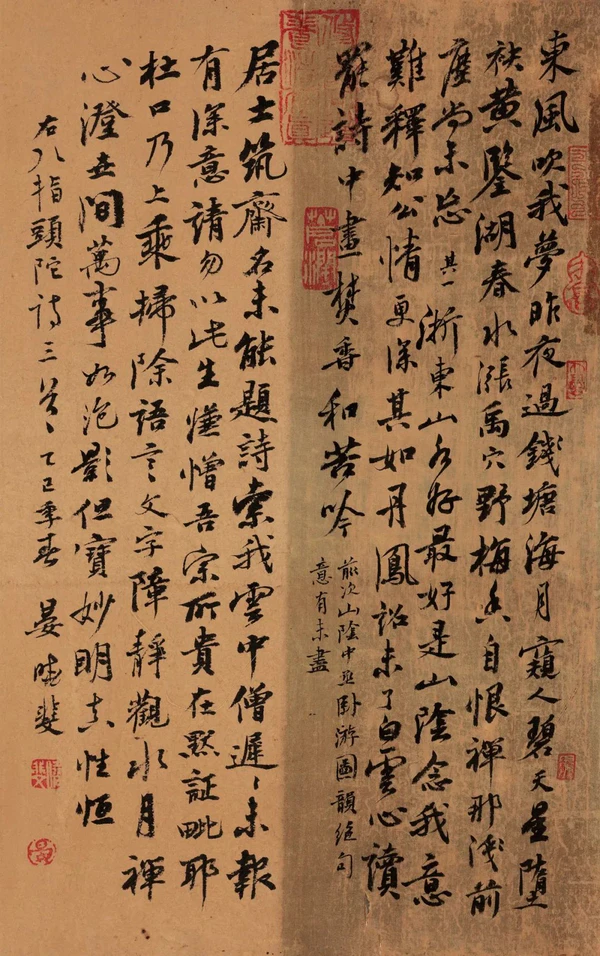 東風吹我夢昨夜過錢塘海月窺人碧天星墮
袂黄鑒湖春水漲禹穴野梅香自恨禪那淺前
塵尚未忘 其一 浙東山水好最好是山陰念我意
難釋知公情更深其如丹鳳詔未了白雲心讀
罷詩中畫焚香和苦吟
前次山陰中丞卧游圖韻絶句
意有未盡
居士筑齋名未能題詩索我雲中僧遲〻未報
有深意請勿以此生嫌憎吾宗所貴在默証毗耶
杜口乃上乘掃除語言文字障靜觀水月禪
心澄世間萬事如泡影但寶妙明真性恒
右八指頭陀詩三首 乙巳季春 晏晓斐